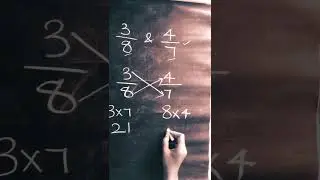 3/8 & 4/7 ✓
3/8 4/7
3x7 8x4
21